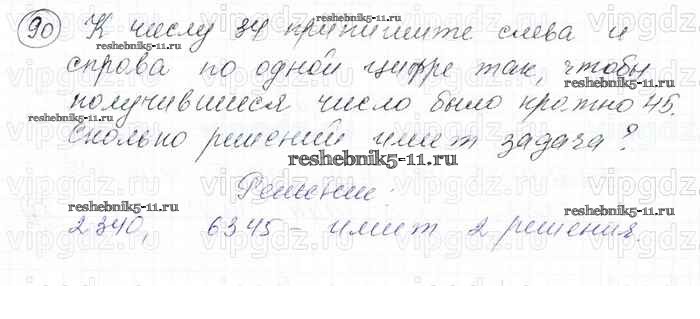 90 К числу 34 припишите слева и
справа по одной цифре так, чтобы
получившееся число было кратно 45.
Сколько решений имеет задача?
Решение.
2340, 6345 - имеет 2 решения.
reshebnik5-11.ru
reshebnik5-11.ru
reshebnik5-11.ru
reshebnik5-11.ru
reshebnik5-11.ru
vipgdz.ru